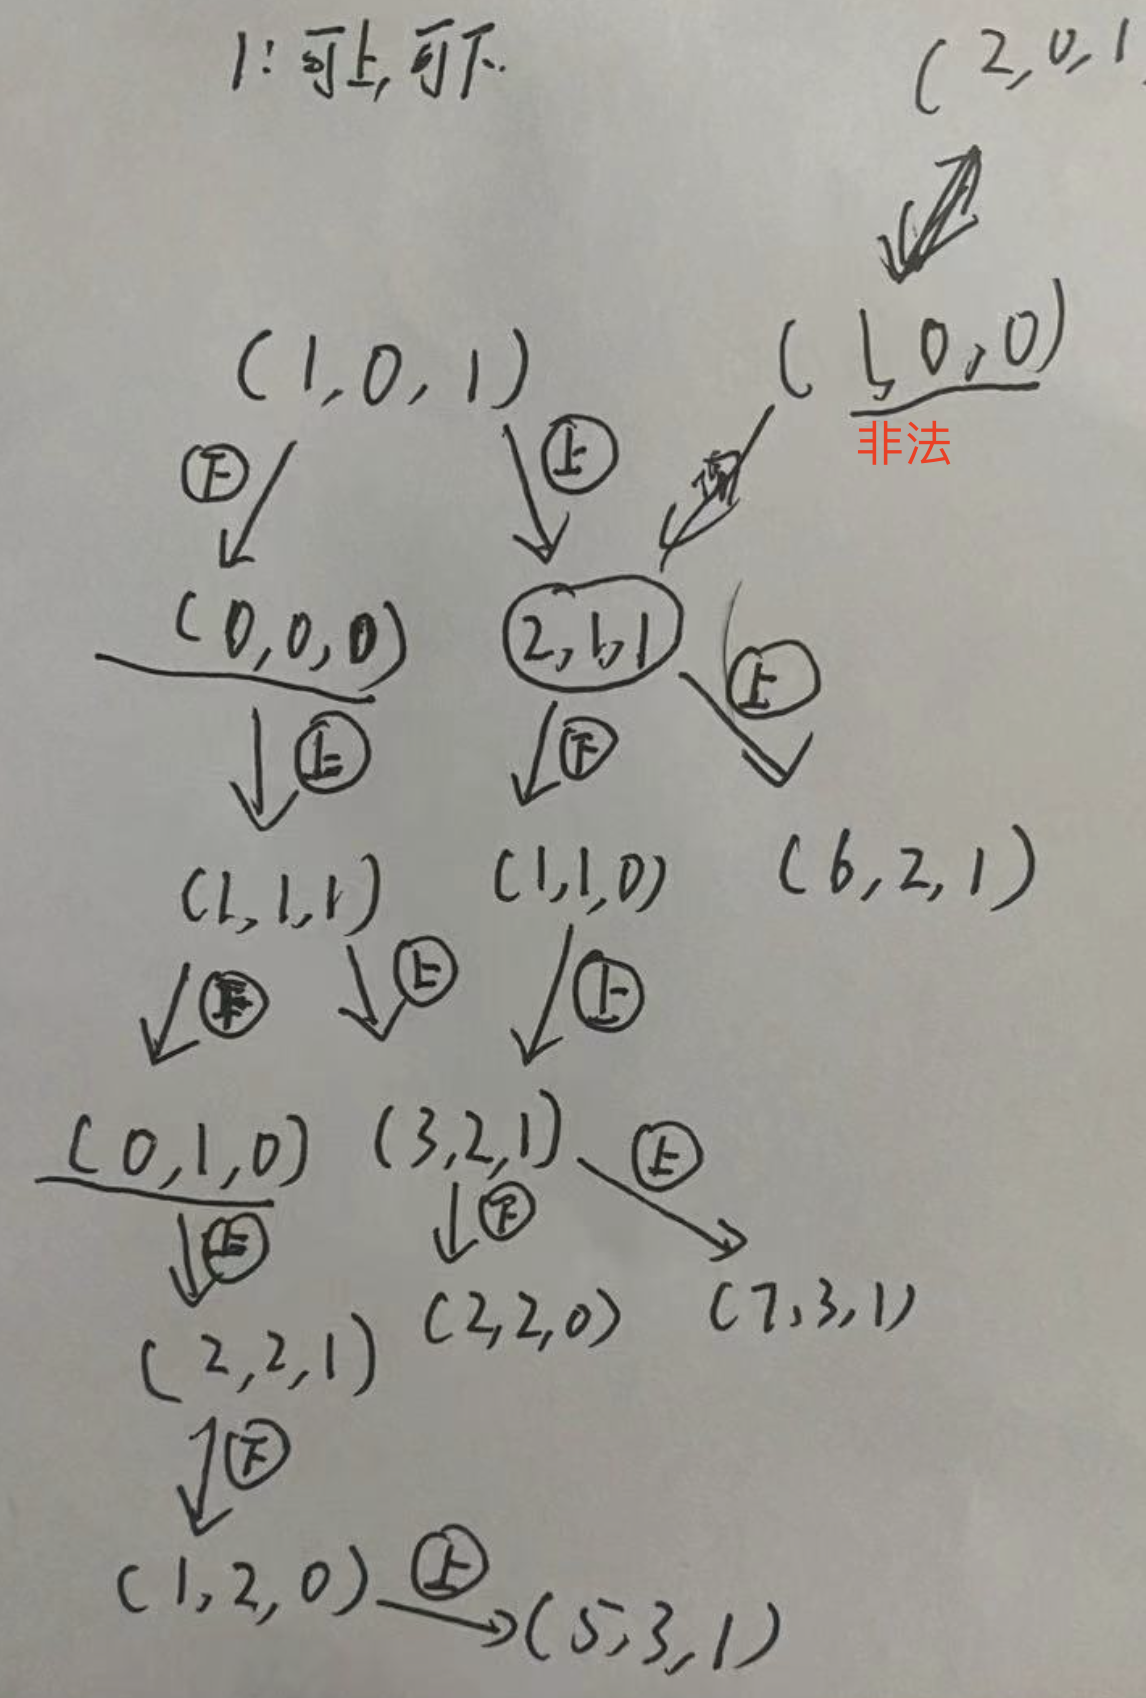 1: 可上, 可下.
(2,0,1
(1,0,1)
(1,0,0)
非法
下
上
(0,0,0)
2,1,1
上
上
下
(1,1,1)
(1,1,0)
(6,2,1)
下
上
上
(0,1,0)
(3,2,1)
上
上
下
(2,2,1)
(2,2,0)
(7,3,1)
下
(1,2,0)
上
(5,3,1)